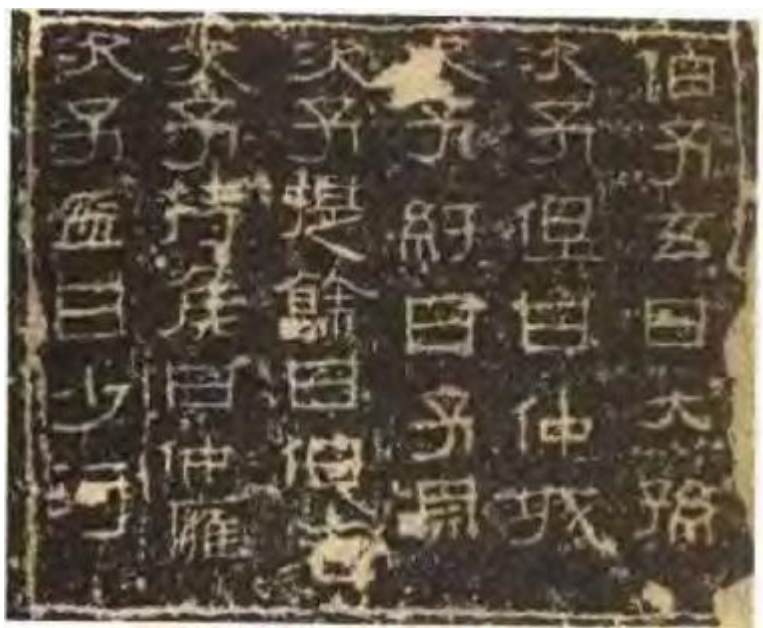 伯子玄曰大孫
次子但曰仲城
次子紆曰子淵
次子提餘曰伯老
次子持侯曰仲廱
次子盈曰少河